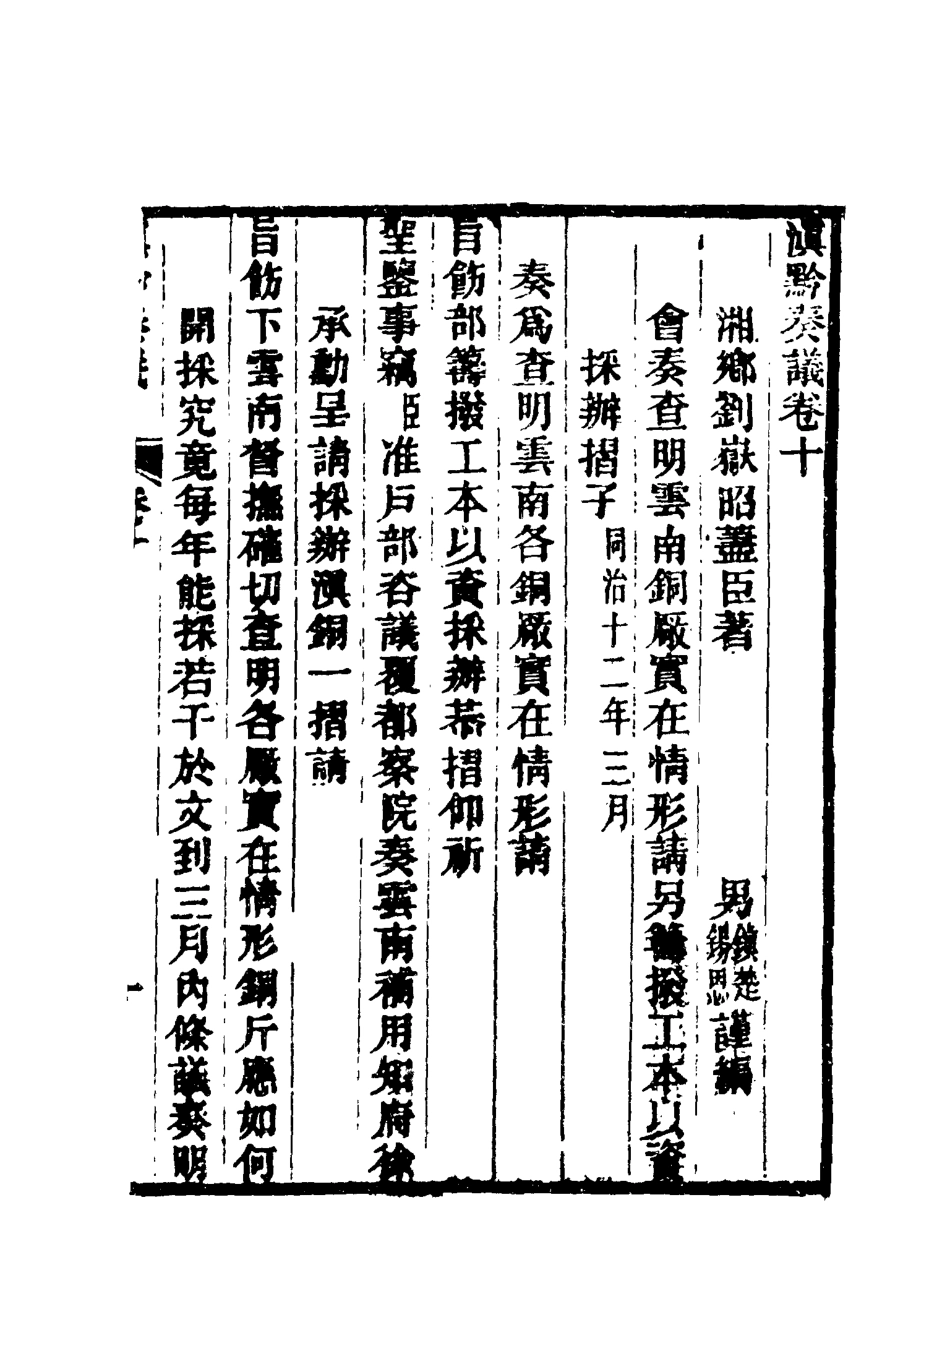 滇黔奏議卷十
湘鄉劉嶽昭藎臣著　男鎮楚錫恩謹編
會奏查明雲南銅厰實在情形請另籌撥工本以資
採辦摺子同治十二年三月
奏爲查明雲南各銅厰實在情形請
旨飭部籌撥工本以資採辦恭摺仰祈
聖鑒事竊臣准戶部咨議覆都察院奏雲南補用知府徐
承勳呈請採辦滇銅一摺請
旨飭下雲南督撫確切查明各厰實在情形銅斤應如何
開採究竟每年能採若干於文到三月內條議奏明